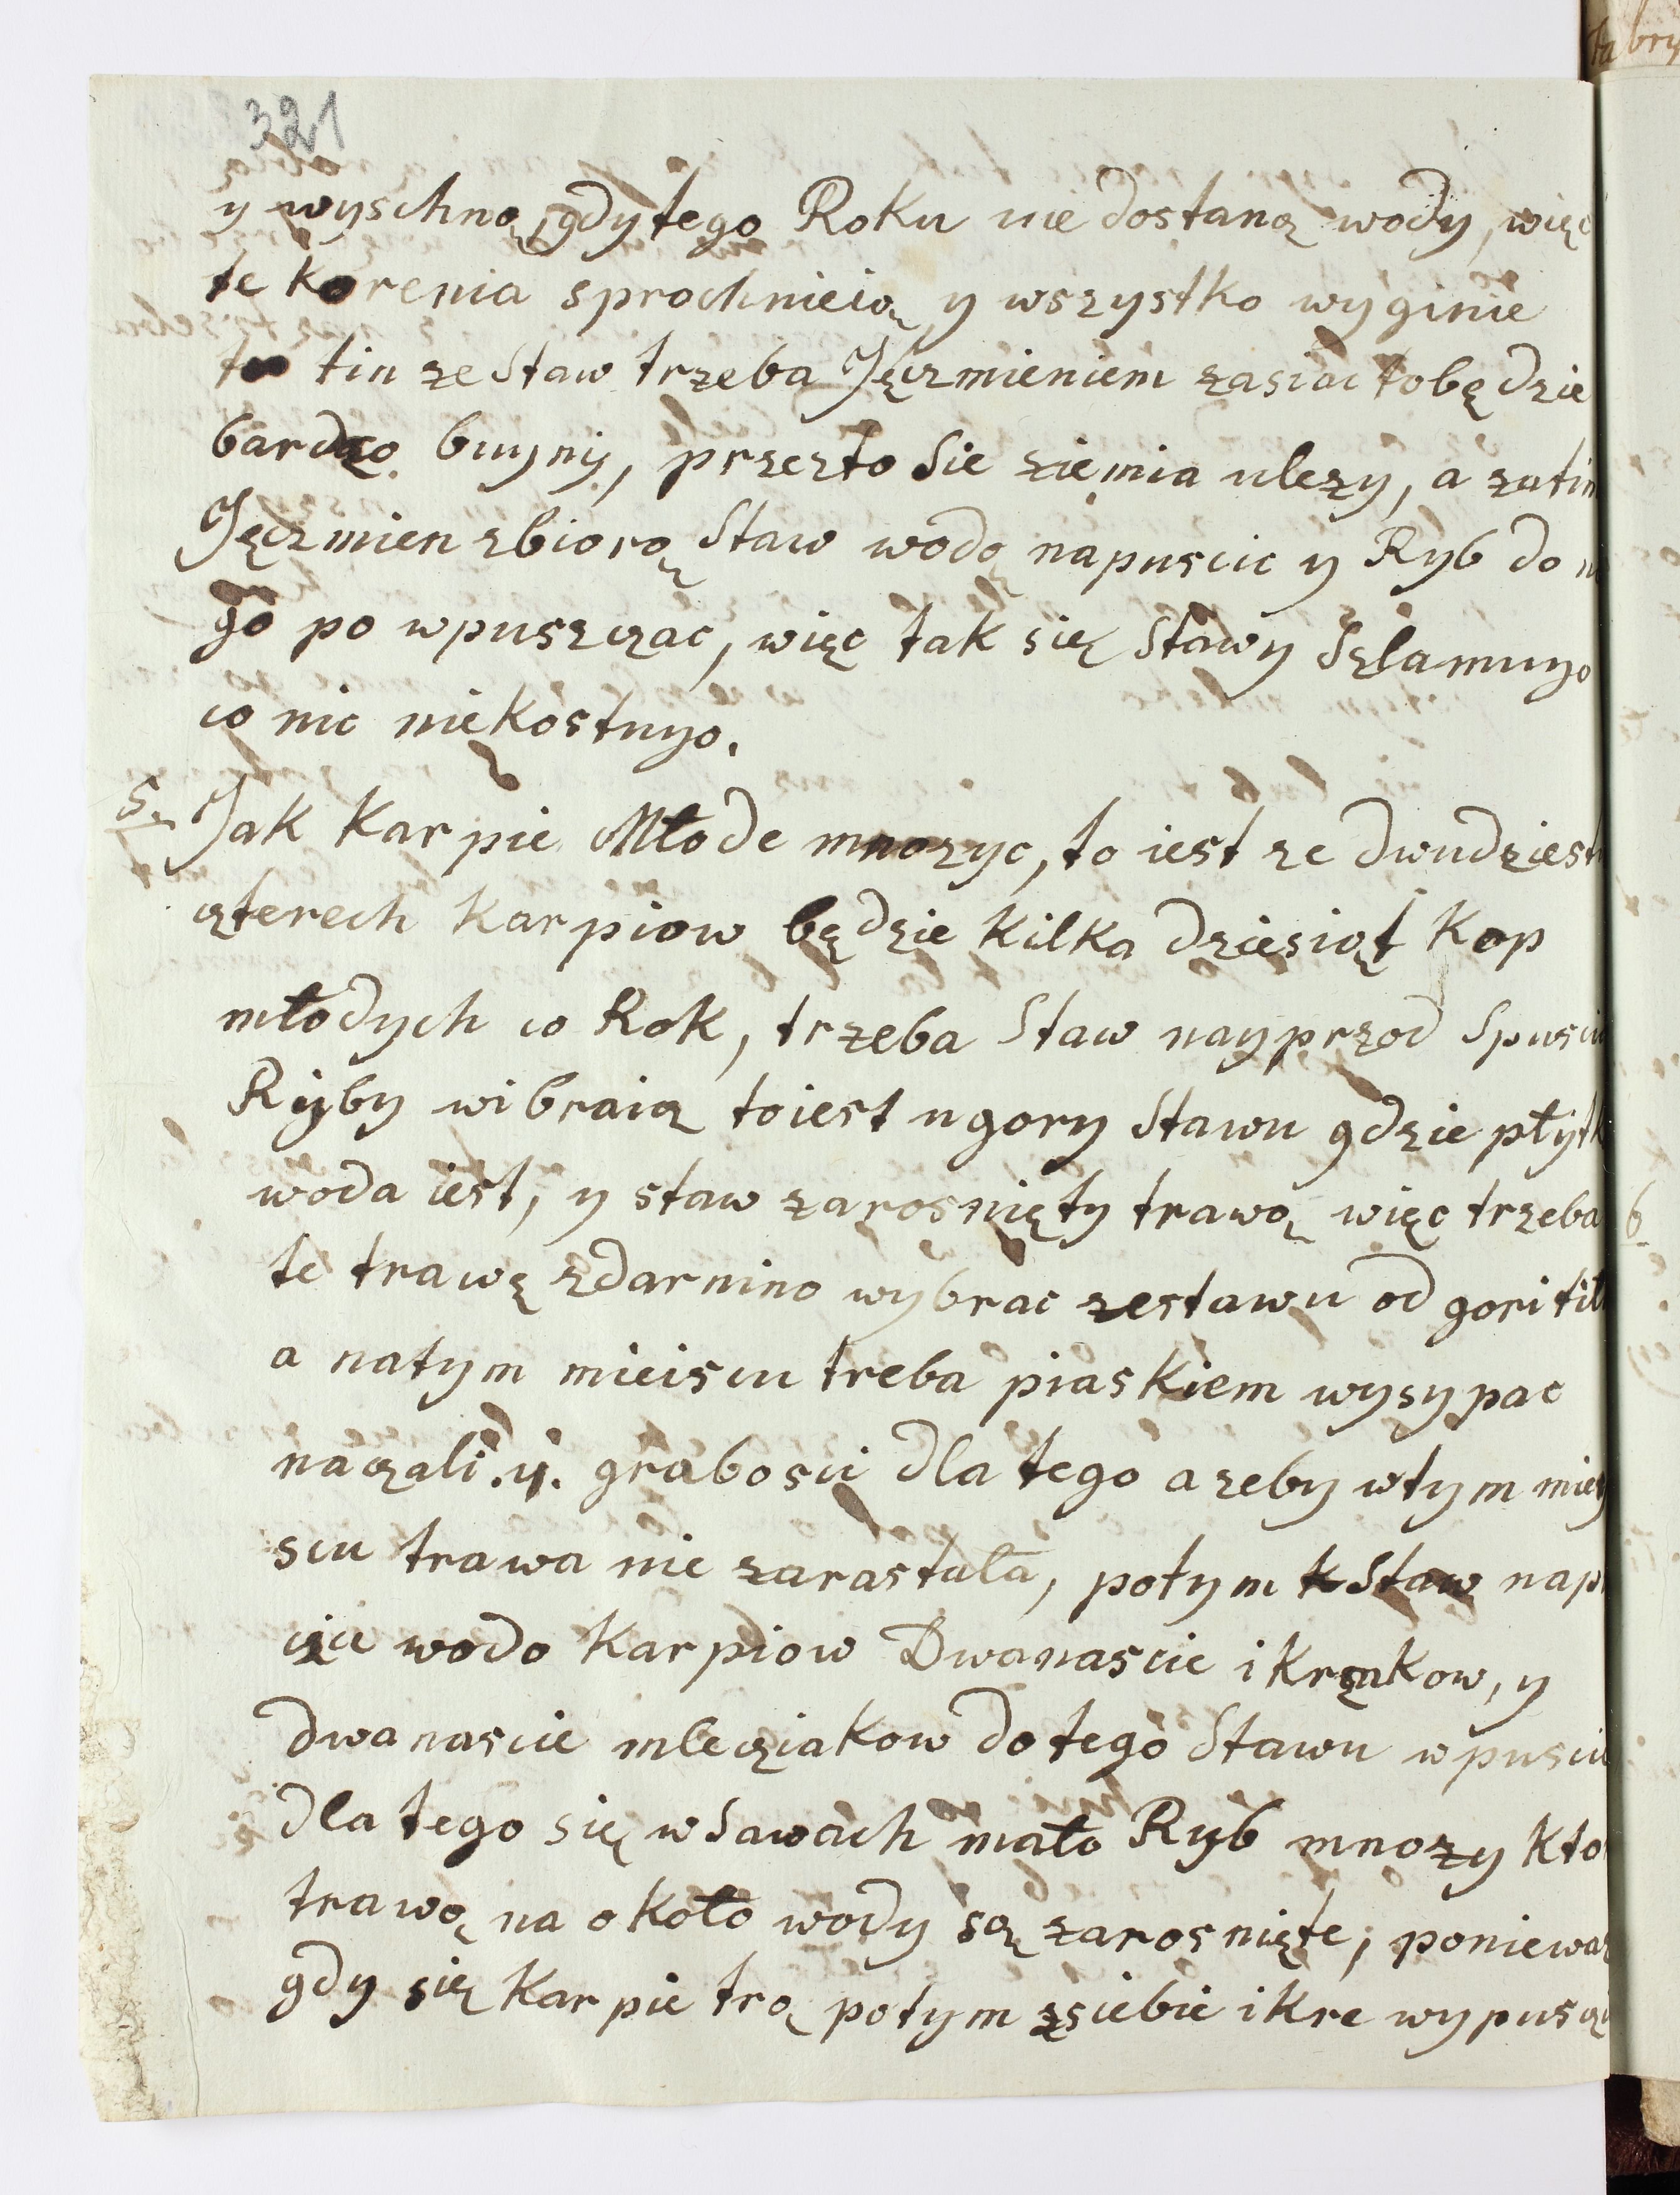 321
y wyschną, gdy tego Roku nie dostaną wody, więc
te korenia sprochnieią y wszystko wyginie
tin ze Staw trzeba Jęczmieniem zasiac to będzie
bardzo buyny, przezto Sie ziemia ulezy, a zatim
Jęczmien zbiorą Staw wodą napuscic y Ryb do
go po wpuszczac, więc tak się Stawy Szlamuyo
co nic niekostuyo.
5. Jak Karpie Młode mnozyc, to iest ze dwudziestu
czterech Karpiow będzie Kilka dziesiąt Kop
młodych co Rok, trzeba Staw nayprzod Spuscic
Ryby wibraią toiest u gory Stawu gdzie płytk
woda iest, y staw zarosnięty trawą więc trzeba
te trawę zdarnino wybrac zestawu od gori
a natym mieiscu treba piaskiem wysypac
naczali .4. grabosci dla tego azeby wtym miey
scu trawa nie zarastała, potym Staw nap
wodo Karpiow Dwanascie ikrzakow, y
dwanascie mlecziakow do tego Stawu wpuscic
dla tego się w Sawach mało Ryb mnozy kto
trawą na około wody są zarosnięte, poniewaz
gdy się Karpie trą potym zsiebie ikre wypuscz
6